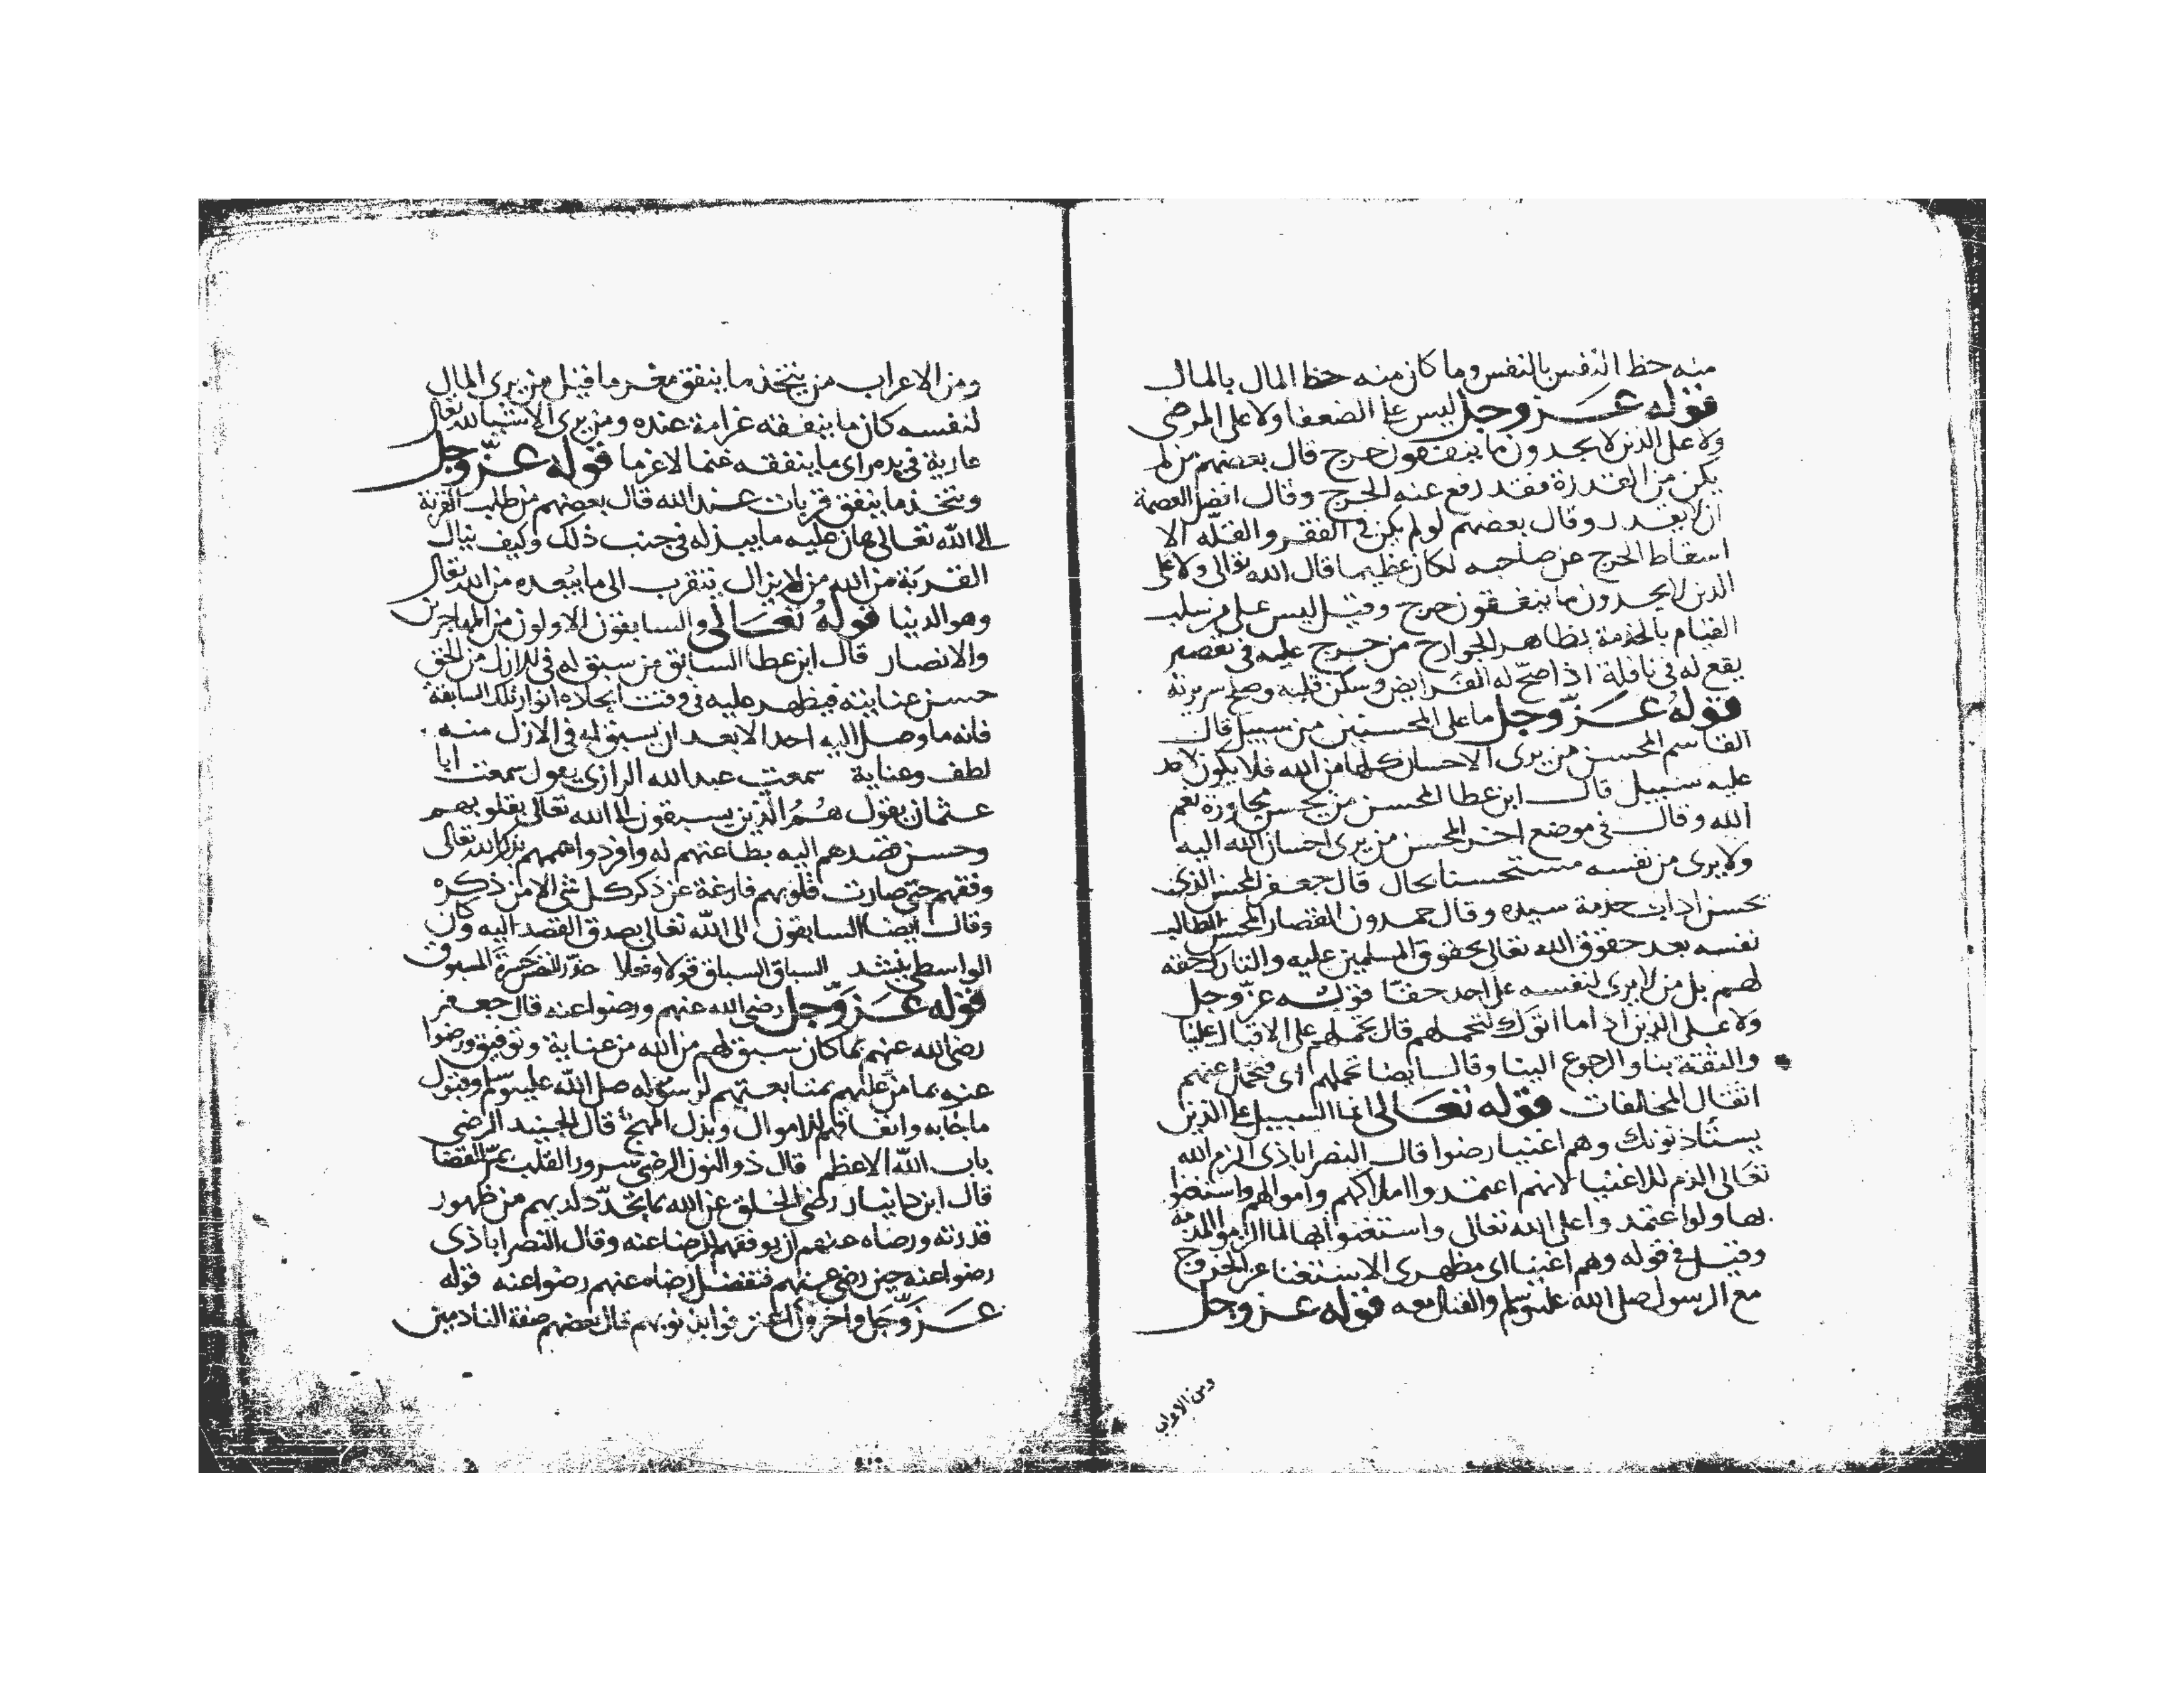 منه حظ النفس بالنفس وما كان منه حظ المال بالمال
قوله عز وجل ليس على الضعفا ولا على المرضى
ولا على الذين لا يجدون ما ينفقون حرج قال بعضهم من لم
يكن من القدرة فقد رفع عنه الحرج وقال افضل العصمة
ان لا يقدر وقال بعضهم لو لم يكن في الفقر والقلة الا
اسقاط الحرج عن صاحبه لكان عظيما قال الله تعالى ولا على
الذين لا يجدون ما ينفقون حرج وقيل ليس على من سلب
القيام بالخدمة بظاهر الجوارح من حرج عليه في تقصير
يقع له في نافلة اذا صح له الفرايض وسكن قلبه وصلح سريرته
قوله عز وجل ما على المحسنين من سبيل قال
القاسم المحسن من يرى الاحسان كلها من الله فلا يكون لاحد
عليه سبيل قال ابن عطا المحسن من يحسن مجاورة نعم
الله وقال في موضع اخر المحسن من يرى احسان الله اليه
ولا يرى من نفسه مستحسنا بحال قال جعفر المحسن الذي
يحسن اداب خدمة سيده وقال حمدون القصار المحسن المطالب
نفسه بعد حقوق الله تعالى بحقوق المسلمين عليه والتارك حقه
لهم بل من لا يرى لنفسه على احد حقا قوله عز وجل
ولا على الذين اذا ما اتوك لتحملهم قال تحملهم على الاقبال علينا
والثقة بنا والرجوع الينا وقال ايضا تحملهم اى فتحمل عنهم
اثقال المخالفات قوله تعالى انما السبيل على الذين
يستأذنونك وهم اغنيا رضوا قال النصراباذى الزم الله
تعالى الذم للاغنيا لانهم اعتمدوا املاكهم واموالهم واستغنوا
بها ولو اعتمدوا على الله تعالى واستغنوا به لما الزموا المذمة
وقيل في قوله وهم اغنيا اى مظهرى الاستغنا عن الخروج
مع الرسول صلى الله عليه وسلم والقتال معه قوله عز وجل
ومن الاعراب
ومن الاعراب من يتخذ ما ينفق مغرما قيل من يرى المال
لنفسه كان ما ينفقه غرامة عنده ومن يرى الاشيا لله تعالى
عارية في يده راى ما ينفقه غنما لا غرما قوله عز وجل
ويتخذ ما ينفق قربات عند الله قال بعضهم من طلب القربة
الى الله تعالى هان عليه ما يبذله في جنب ذلك وكيف ينال
القربة من الله من لا يزال يتقرب الى ما يبعده من الله تعالى
وهو الدنيا قوله تعالى والسابقون الاولون من المهاجرين
والانصار قال ابن عطا السابق من سبق له في الازل من الحق
حسن عنايته فيظهر عليه في وقت ايجاده انوار تلك السابقة
فانه ما وصل اليه احد الا بعد ان يسبق له في الازل منه
لطف وعناية سمعت عبد الله الرازى يقول سمعت ابا
عثمان يقول هم الذين يسبقون الى الله تعالى بقلوبهم
وحسن قصدهم اليه بطاعتهم له وافردوا هممهم بذكر الله تعالى
وفقهم حتى صارت قلوبهم فارغة عن ذكر كل شى الا من ذكره
وقال ايضا السابقون الى الله تعالى بصدق القصد اليه وكان
الواسطى ينشد السباق السباق قولا وفعلا حذر النفس حسرة المسبوق
قوله عز وجل رضى الله عنهم ورضوا عنه قال جعفر
رضى الله عنهم بما كان سبق لهم من الله من عناية وتوفيق ورضوا
عنه بما من عليهم بمتابعتهم لرسوله صلى الله عليه وسلم وقبول
ما جا به وانفاقهم الاموال وبذل المهج قال الجنيد الرضى
باب الله الاعظم قال ذو النون الرضى سرور القلب بمر القضا
قال ابن دانيار رضى الخلق عن الله بما يتجدد لديهم من ظهور
قدرته ورضاه عنهم ان يوفقهم للرضا عنه وقال النصراباذى
رضوا عنه حين رضى عنهم فتفضل رضاه عنهم رضوا عنه قوله
عز وجل واخرون اعترفوا بذنوبهم قال بعضهم صفة النادمين